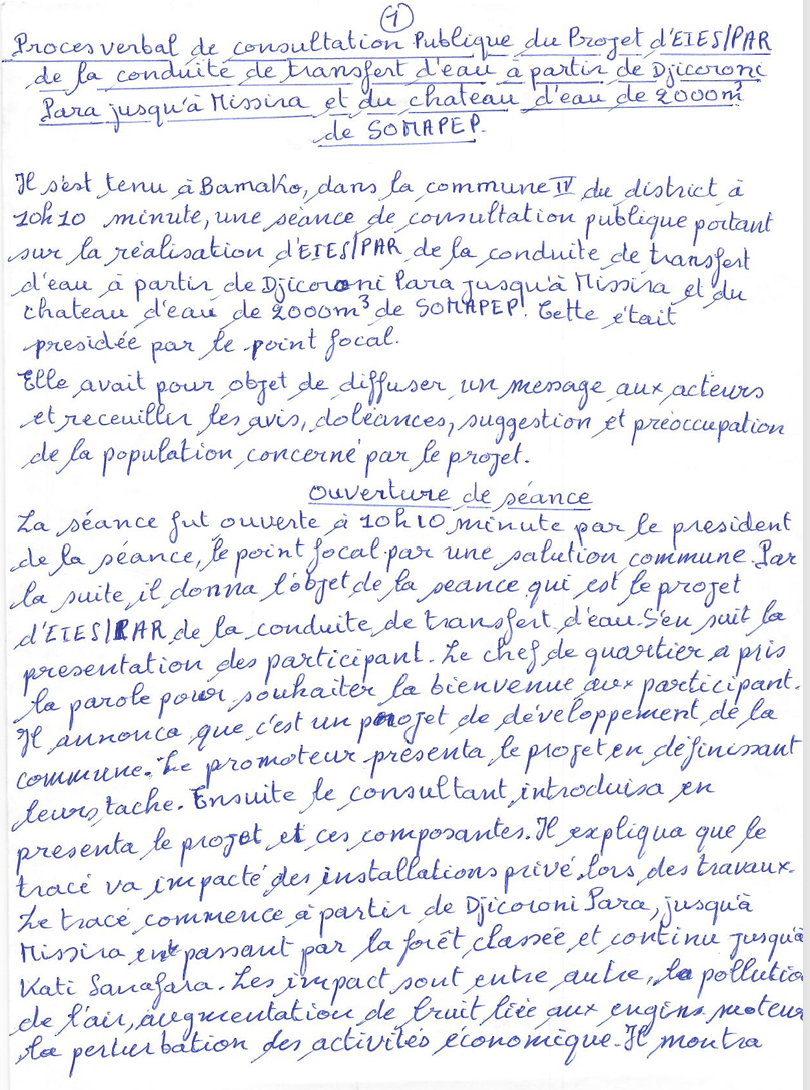 1
Proces verbal de consultation Publique du Projet d'EIES/PAR
de la conduite de transfert d'eau à partir de Djicoroni
Para jusqu'à Missira et du chateau d'eau de 2000m³
de SOMAPEP.
Il s'est tenu à Bamako, dans la commune IV du district à
10h10 minute, une séance de consultation publique portant
sur la réalisation d'EIES/PAR de la conduite de transfert
d'eau à partir de Djicoroni Para jusqu'à Missira et du
chateau d'eau de 2000m³ de SOMAPEP. Cette était
presidée par le point focal.
Elle avait pour objet de diffuser un message aux acteurs
et receuillir les avis, doléances, suggestion et préoccupation
de la population concerné par le projet.
Ouverture de séance
La séance fut ouverte à 10h10 minute par le president
de la séance, le point focal par une salution commune. Par
la suite, il donna l'objet de la seance qui est le projet
d'EIES/PAR de la conduite de transfert d'eau. S'en suit la
presentation des participant. Le chef de quartier a pris
la parole pour souhaiter la bienvenue aux participant.
Il annonca que c'est un projet de développement de la
commune. Le promoteur présenta le projet en définissant
leurs tache. Ensuite le consultant introduisa en
presenta le projet et ces composantes. Il expliqua que le
tracé va impacté des installations privé lors des travaux.
Le tracé commence à partir de Djicoroni Para, jusqu'à
Missira en passant par la forêt classée et continu jusqu'à
Kati Sanafara. Les impact sont entre autre, la pollutio
de l'air, augmentation de bruit liée aux engins moteur
la perturbation des activités économique. Il montra